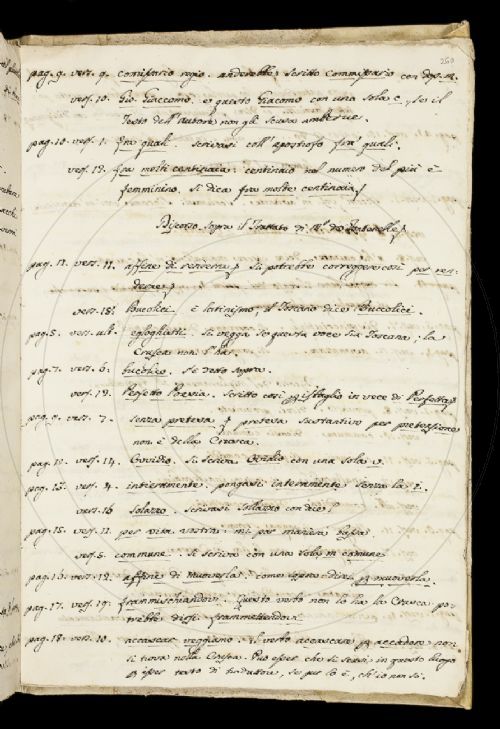 250
pag. 9. vers. 9. comissario regio. anderebbe scritto commissario con dop. m.
vers. 10. Gio: Giaccomo. e questo Giacomo con una sola c, se il
Testo dell'autore non gli scusa ambedue.
pag. 10. vers. 1. fra quali. scrivasi coll'apostrofo fra' quali.
vers. 12. fra molti centinaia: centinaio nel numero del più è
femminino. si dica fra molte centinaia
Discorso sopra il Trattato di Mr. de Fontenelle
pag. 11. vers. 11. affine di rendere si potrebbe correggere così per ren-
dere
vers. 18. Bucolici è latinismo, il Toscano dice Buccolici.
pag. 5. vers. ult. egloghisti. Si vegga se questa voce sia Toscana; la
Crusca non l'ha.
pag. 7. vers. 6. bucolico. Se n'è detto sopra.
vers. 12. Perfetto Poesia. Scritto così per isbaglio in vece di Perfetta
pag. 8. vers. 7. senza pretesa. pretesa sustantivo per pretensione
non è della Crusca.
pag. 10. vers. 14. Ovvidio. Si scriva Ovidio con una sola v.
pag. 13. vers. 4. intieramente. pongasi interamente senza la i.
vers. 16 solazzo. scrivasi sollazzo con due l
pag. 15. vers. 11. per vita vostra. mi par maniera bassa.
vers. 5. commune. Si scriva con una sola m comune
pag. 16. vers. 12. affine di muoverla: come sopra dirà per muoverla.
pag. 17. vers. 19. frammischiandovi. Questo verbo non lo ha la Crusca po-
trebbe dirsi frammettendovi
pag. 18. vers. 10. accascar veggiamo. il verbo accascare per accadere non
si trova nella Crusca. Può esser che si servi in questo luogo
per esser testo di traduttor, se per lo è, ch'io non so.